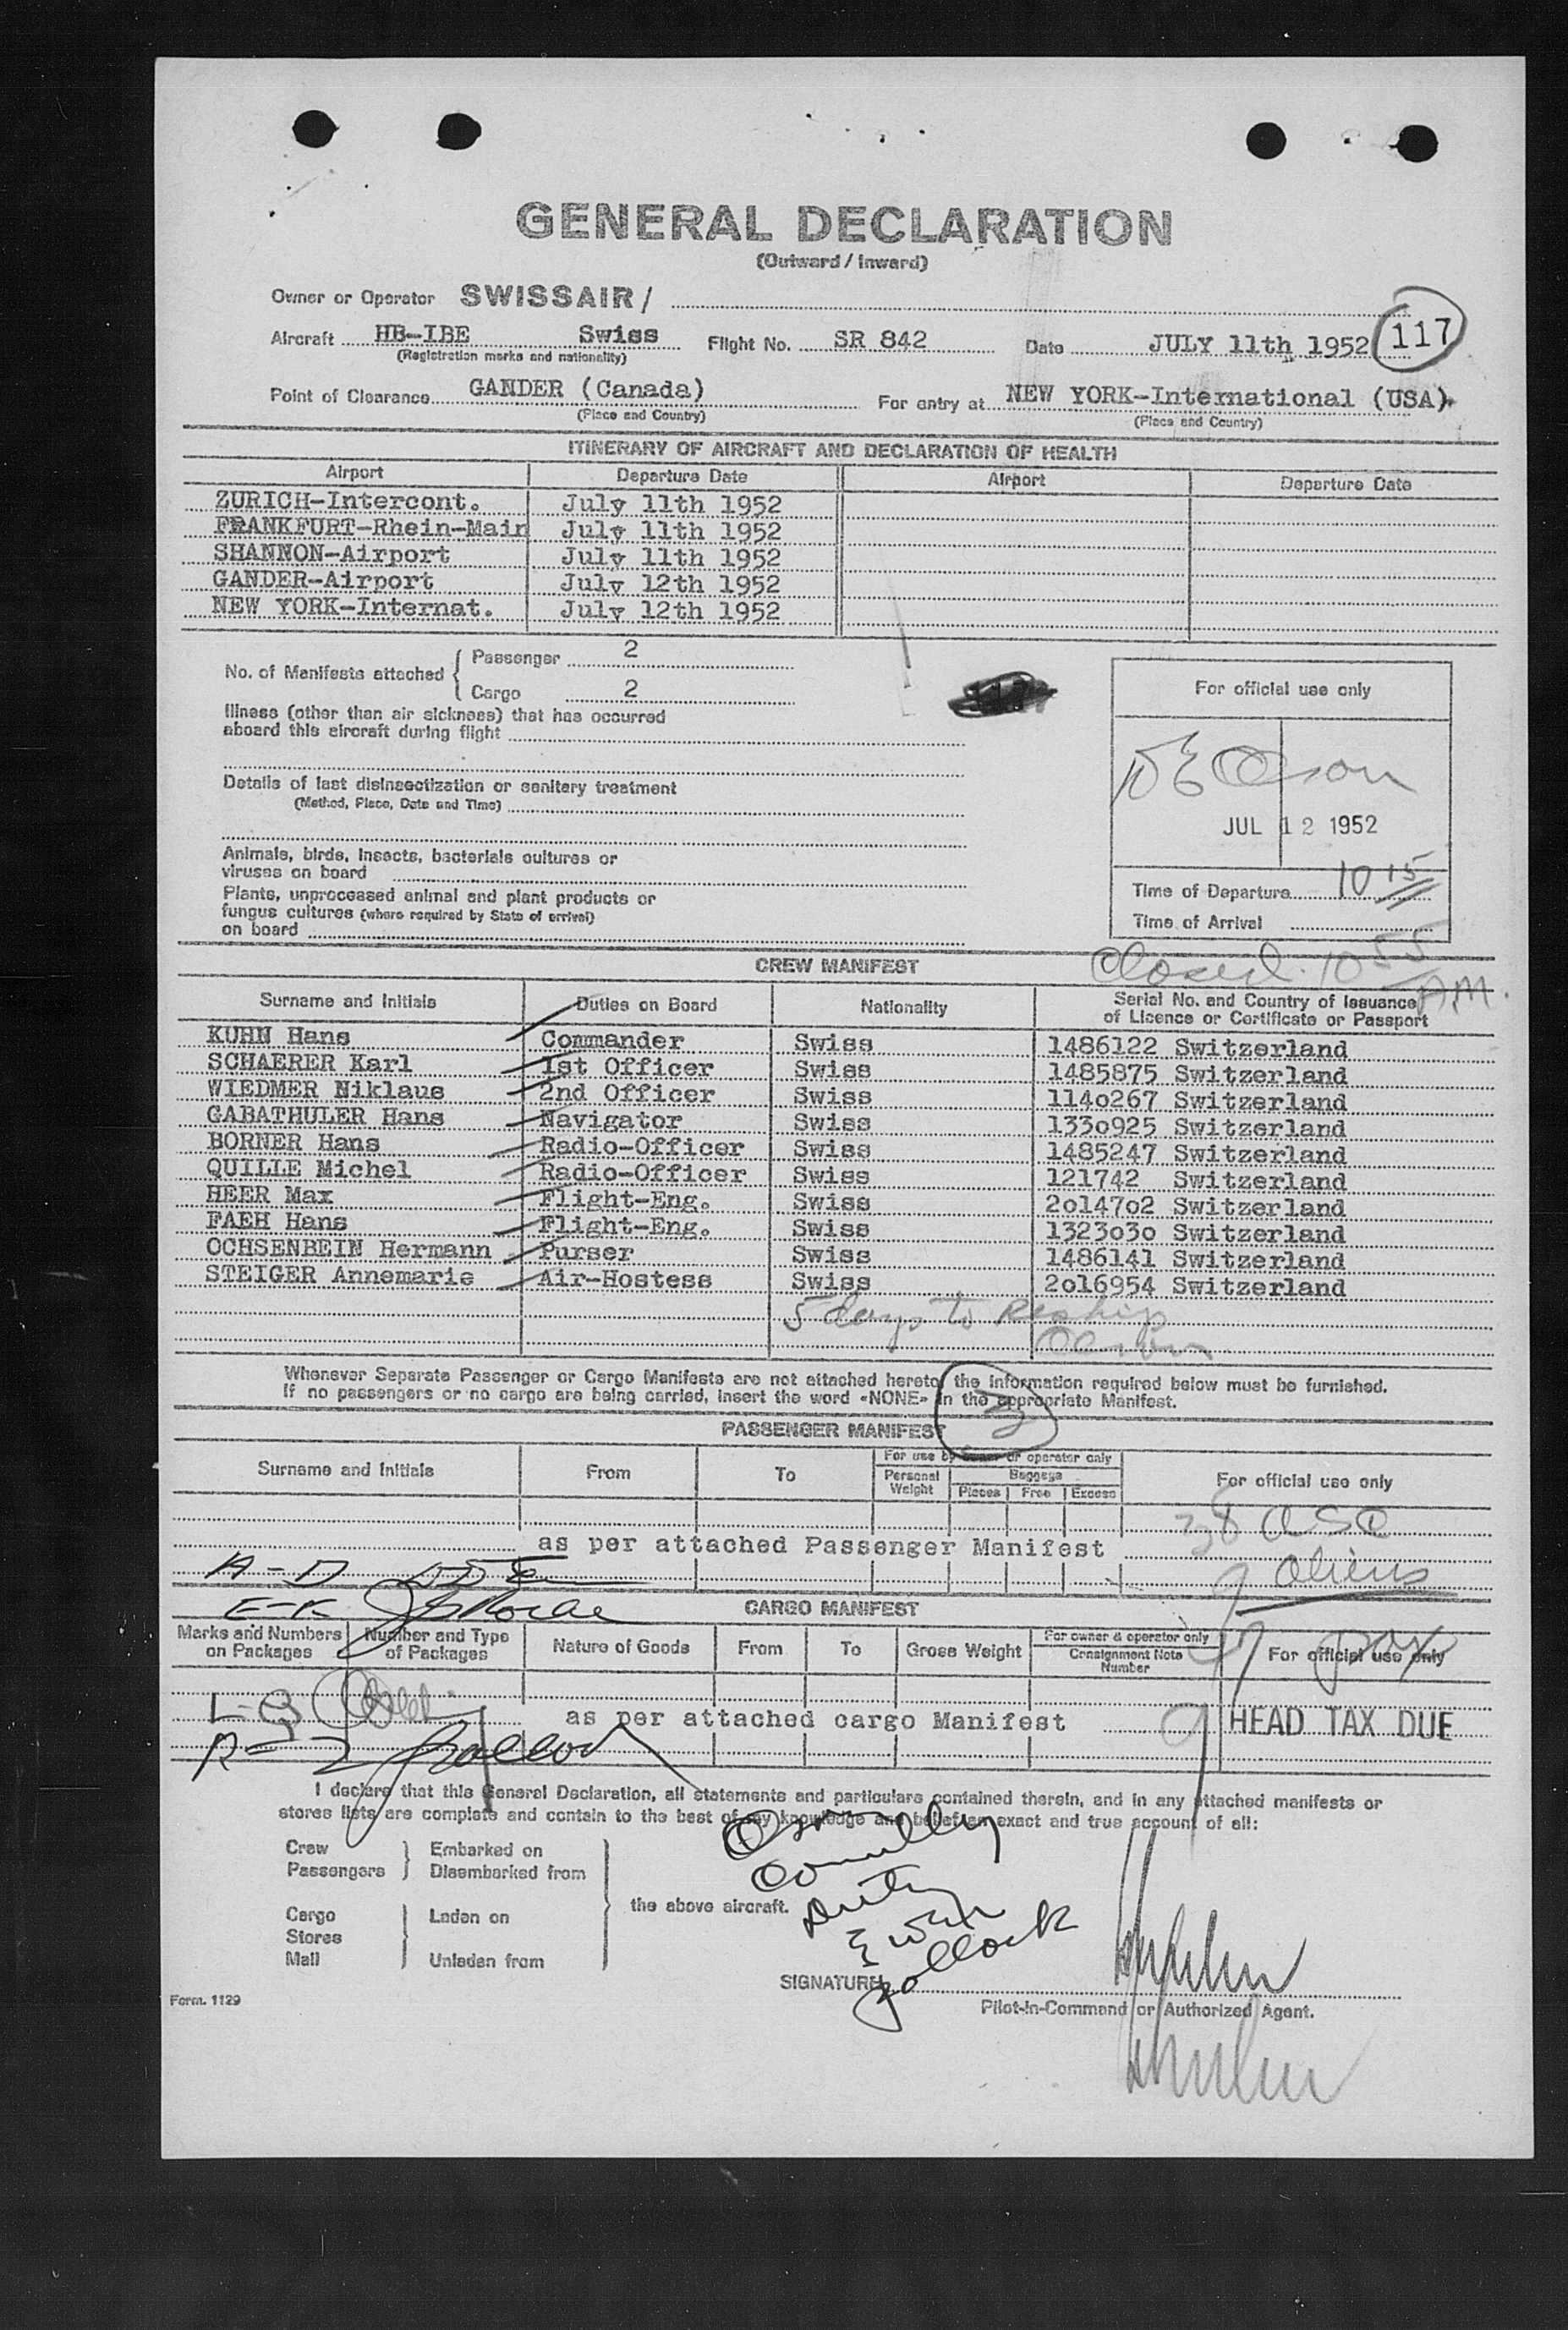 GENERAL DECLARATION
(Outward / Inward)
Owner or Operator SWISSAIR /
117
Aircraft HB-IBE Swiss Flight No. SR 842 Date JULY 11th 1952
(Registration marks and nationality)
Point of Clearance GANDER (Canada) For entry at NEW YORK-International (USA).
(Place and Country) (Place and Country)
ITINERARY OF AIRCRAFT AND DECLARATION OF HEALTH
Airport Departure Date Airport Departure Date
ZURICH-Intercont. July 11th 1952
FRANKFURT-Rhein-Main July 11th 1952
SHANNON-Airport July 11th 1952
GANDER-Airport July 12th 1952
NEW YORK-Internat. July 12th 1952
No. of Manifests attached { Passenger 2
Cargo 2
For official use only
Illness (other than air sickness) that has occurred
aboard this aircraft during flight
Details of last disinsectization or sanitary treatment
(Method, Place, Date and Time)
JUL 12 1952
Animals, birds, insects, bacterials cultures or
viruses on board
Plants, unprocessed animal and plant products or
fungus cultures (where required by State of arrival)
on board
Time of Departure 10 15
Time of Arrival
Closed 10 55 AM.
CREW MANIFEST
Surname and Initials Duties on Board Nationality Serial No. and Country of Issuance
of Licence or Certificate or Passport
KUHN Hans Commander Swiss 1486122 Switzerland
SCHAERER Karl 1st Officer Swiss 1485875 Switzerland
WIEDMER Niklaus 2nd Officer Swiss 1140267 Switzerland
GABATHULER Hans Navigator Swiss 1330925 Switzerland
BORNER Hans Radio-Officer Swiss 1485247 Switzerland
QUILLE Michel Radio-Officer Swiss 121742 Switzerland
HEER Max Flight-Eng. Swiss 2014702 Switzerland
FAEH Hans Flight-Eng. Swiss 1323030 Switzerland
OCHSENBEIN Hermann Purser Swiss 1486141 Switzerland
STEIGER Annemarie Air-Hostess Swiss 2016954 Switzerland
5 days to Reship
Whenever Separate Passenger or Cargo Manifests are not attached hereto, the information required below must be furnished.
If no passengers or no cargo are being carried, insert the word «NONE» in the appropriate Manifest.
3
PASSENGER MANIFEST
Surname and Initials From To For use by owner or operator only For official use only
Personal Weight Baggage
Pieces Free Excess
38 USC
as per attached Passenger Manifest
9 aliens
A-D
E-K
CARGO MANIFEST
Marks and Numbers on Packages Number and Type of Packages Nature of Goods From To Gross Weight For owner & operator only Consignment Note Number For official use only
47 pax
L-Q
as per attached cargo Manifest
9 HEAD TAX DUE
R-Z Pollock
I declare that this General Declaration, all statements and particulars contained therein, and in any attached manifests or
stores lists are complete and contain to the best of my knowledge and belief an exact and true account of all:
Crew } Embarked on
Passengers } Disembarked from
the above aircraft.
Cargo } Laden on
Stores
Mail } Unladen from
Connelly
Pollock
SIGNATURE
Form. 1129
Pilot-in-Command or Authorized Agent.